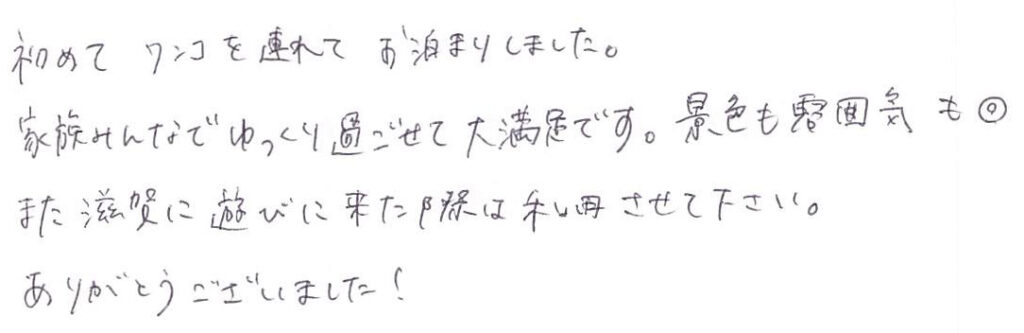 初めて ワンコを連れて お泊まりしました。
家族みんなでゆっくり過ごせて大満足です。景色も雰囲気も◎
また滋賀に遊びに来た際は利用させて下さい。
ありがとうございました！